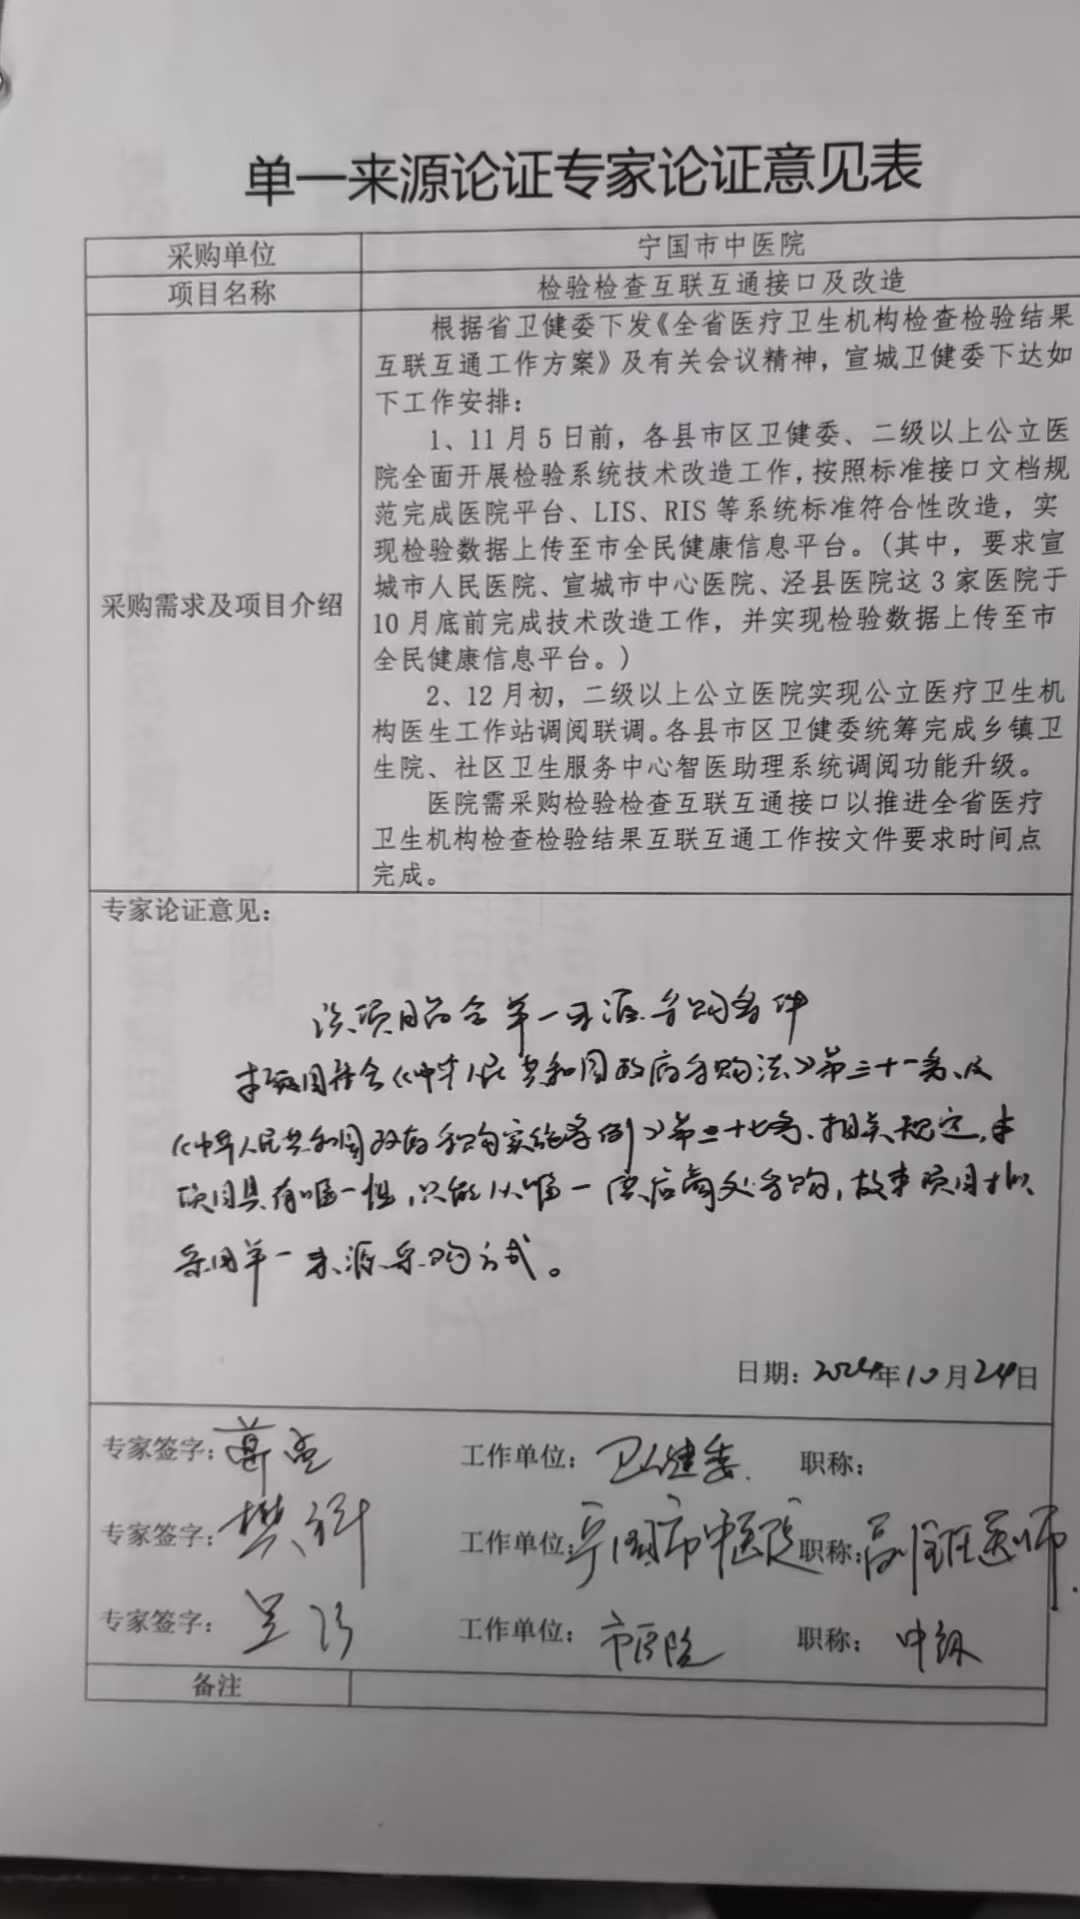 单一来源论证专家论证意见表
采购单位 宁国市中医院
项目名称 检验检查互联互通接口及改造
根据省卫健委下发《全省医疗卫生机构检查检验结果
互联互通工作方案》及有关会议精神，宣城卫健委下达如
下工作安排：
1、11月5日前，各县市区卫健委、二级以上公立医
院全面开展检验系统技术改造工作，按照标准接口文档规
范完成医院平台、LIS、RIS等系统标准符合性改造，实
现检验数据上传至市全民健康信息平台。（其中，要求宣
城市人民医院、宣城市中心医院、泾县医院这3家医院于
采购需求及项目介绍
10月底前完成技术改造工作，并实现检验数据上传至市
全民健康信息平台。）
2、12月初，二级以上公立医院实现公立医疗卫生机
构医生工作站调阅联调。各县市区卫健委统筹完成乡镇卫
生院、社区卫生服务中心智医助理系统调阅功能升级。
医院需采购检验检查互联互通接口以推进全省医疗
卫生机构检查检验结果互联互通工作按文件要求时间点
完成。
专家论证意见：
该项目符合单一来源采购条件
本项目符合《中华人民共和国政府采购法》第三十一条、及
《中华人民共和国政府采购实施条例》第二十七条、相关规定，本
项目具有唯一性，只能从唯一供应商处采购，故本项目拟
采用单一来源采购方式。
日期：2024年10月24日
专家签字： 工作单位：卫健委 职称：
专家签字：樊 工作单位：宁国市中医院 职称：副主任医师
专家签字： 工作单位：市医院 职称：中级
备注